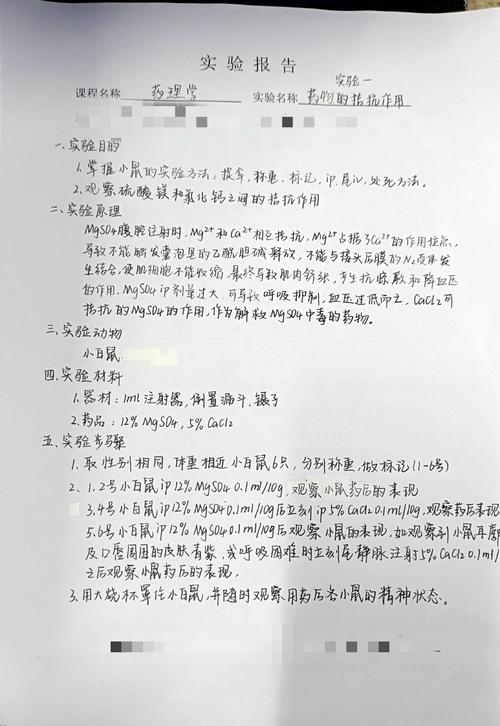 实验报告
实验一
课程名称 药理学 实验名称 药物的拮抗作用
一、实验目的
1. 掌握小鼠的实验方法：捉拿，称重，标记，ip，尾iv，处死方法。
2. 观察硫酸镁和氯化钙之间的拮抗作用
二、实验原理
MgSO4腹腔注射时，Mg²⁺和Ca²⁺相互拮抗，Mg²⁺占据了Ca²⁺的作用位点，
导致不能触发囊泡里的乙酰胆碱释放，不能与接头后膜的N₂受体发
生结合，使肌细胞不能收缩，最终导致肌肉舒张，产生抗惊厥和降血压
的作用。MgSO4 ip剂量过大，可导致呼吸抑制，血压过低而亡，CaCl2可
拮抗的MgSO4的作用，作为解救MgSO4中毒的药物。
三、实验动物
小白鼠
四、实验材料
1. 器材：1ml注射器，倒置漏斗，镊子
2. 药品：12% MgSO4，5% CaCl2
五、实验步骤
1. 取性别相同，体重相近小白鼠6只，分别称重，做标记（1-6号）
2. 1，2号小白鼠ip 12% MgSO4 0.1ml/10g，观察小鼠药后的表现
3，4号小白鼠ip 12% MgSO4 0.1ml/10g后立刻ip 5% CaCl2 0.1ml/10g，观察药后表现
5，6号小白鼠ip 12% MgSO4 0.1ml/10g后观察小鼠的表现，如观察到小鼠耳廓
及口唇周围的皮肤青紫，或呼吸困难时立刻尾静脉注射5% CaCl2 0.1ml/
之后观察小鼠药后的表现。
3. 用大烧杯罩住小白鼠，并随时观察用药后各小鼠的精神状态。